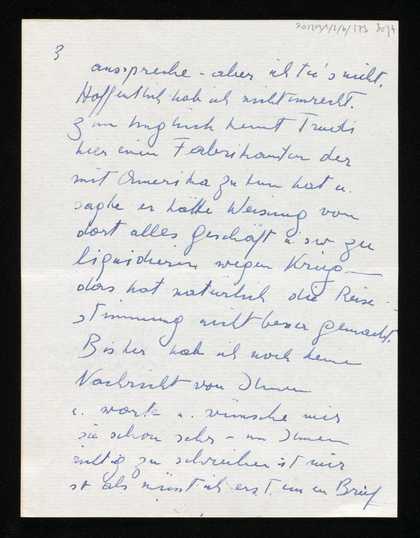 3
ausspreche - aber ich tu's nicht.
Hoffentlich hab ich nicht unrecht.
Zum Unglück kennt Trudi
hier einen Fabrikanten der
mit Amerika zu tun hat u.
sagte er hätte Weisung von
dort alles Geschäft u.s.w zu
liquidieren wegen Krieg -
das hat natürlich die Reise-
stimmung nicht besser gemacht.
Bisher hab ich noch keine
Nachricht von Ihnen
u. warte u. wünsche mir
sie schon sehr - um Ihnen
richtig zu schreiben ist mir
so als müsst ich erst einen Brief